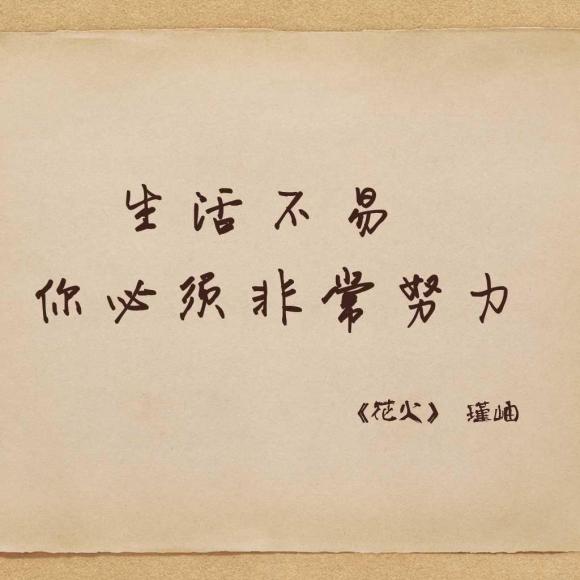 生活不易
你必须非常努力
《花火》 瑾岫